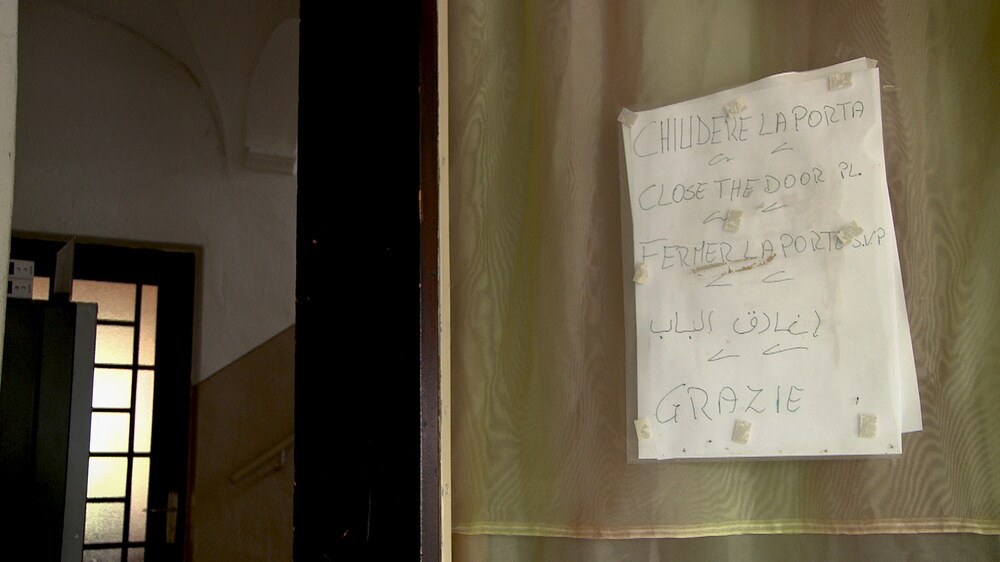 CHIUDERE LA PORTA
CLOSE THE DOOR PL.
FERMER LA PORTE S.V.P
إغلاق الباب
GRAZIE